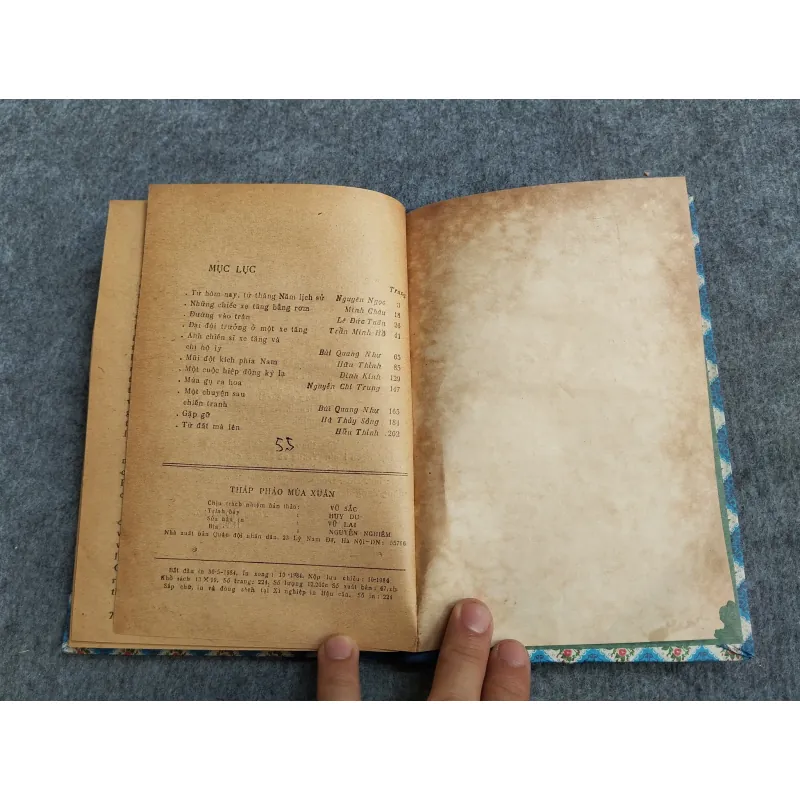 MỤC LỤC
Trang
. Từ hôm nay, từ tháng Năm lịch sử Nguyên Ngọc 3
. Những chiếc xe tăng bằng rơm Minh Châu 18
. Đường vào trận Lê Đức Tuấn 26
. Đại đội trưởng ở một xe tăng Trần Minh Hồ 41
. Anh chiến sĩ xe tăng và
chị hộ lý Bùi Quang Như 65
. Mũi đột kích phía Nam Hữu Thỉnh 85
. Một cuộc hiệp đồng kỳ lạ Đình Kính 129
. Mùa gụ ra hoa Nguyễn Chí Trung 147
. Một chuyện sau
chiến tranh Bùi Quang Như 165
. Gặp gỡ Hà Thủy Sông 184
. Từ đất mà lên Hữu Thỉnh 202
55
THÁP PHÁO MÙA XUÂN
Chịu trách nhiệm bản thảo: VŨ SẮC
Trình bày : HUY DU
Sửa bản in : VŨ LAI
Bìa : NGUYỄN NGHIÊM
Nhà xuất bản Quân đội nhân dân. 25 Lý Nam Đế, Hà Nội-ĐN: 55766
Bắt đầu in 1984, In xong: 10-1984. Nộp lưu chiểu: 10-1984
Khổ sách 13 × 19, Số trang: 224, Số lượng Số xuất bản: 67.
Sắp chữ, in và đóng sách, tại Xí nghiệp in Hậu cần. Số in: 224